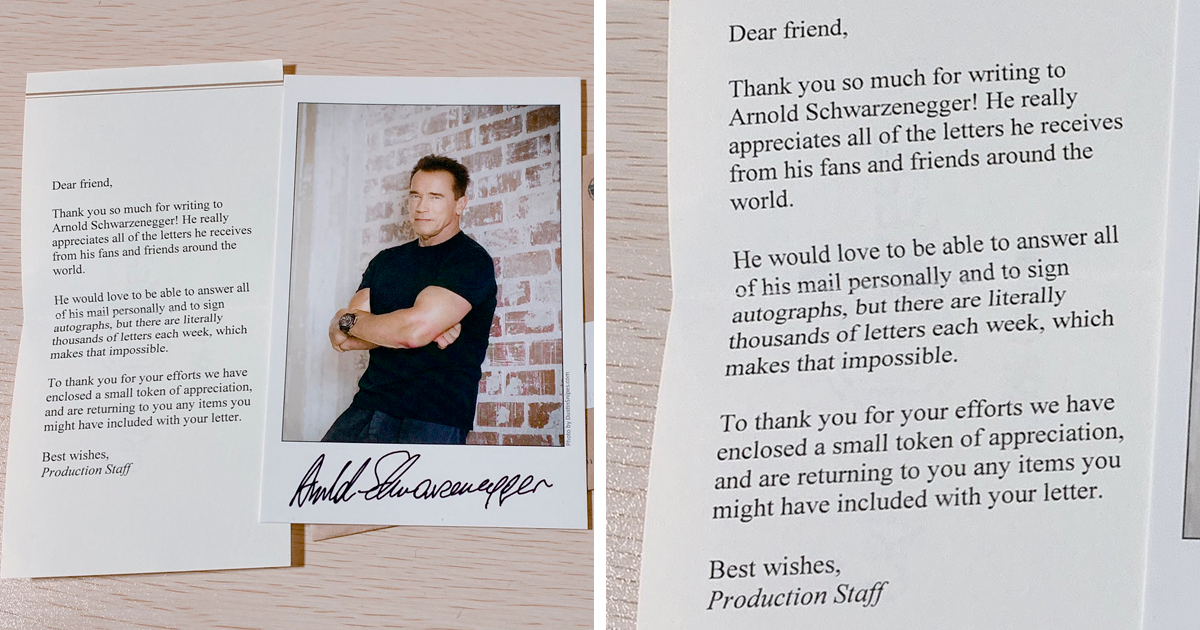 Dear friend,
Thank you so much for writing to
Arnold Schwarzenegger! He really
appreciates all of the letters he receives
from his fans and friends around the
world.
He would love to be able to answer all
of his mail personally and to sign
autographs, but there are literally
thousands of letters each week, which
makes that impossible.
To thank you for your efforts we have
enclosed a small token of appreciation,
and are returning to you any items you
might have included with your letter.
Best wishes,
Production Staff
Photo by DustinSnipes.com
Arnold Schwarzenegger
Dear friend,
Thank you so much for writing to
Arnold Schwarzenegger! He really
appreciates all of the letters he receives
from his fans and friends around the
world.
He would love to be able to answer all
of his mail personally and to sign
autographs, but there are literally
thousands of letters each week, which
makes that impossible.
To thank you for your efforts we have
enclosed a small token of appreciation,
and are returning to you any items you
might have included with your letter.
Best wishes,
Production Staff